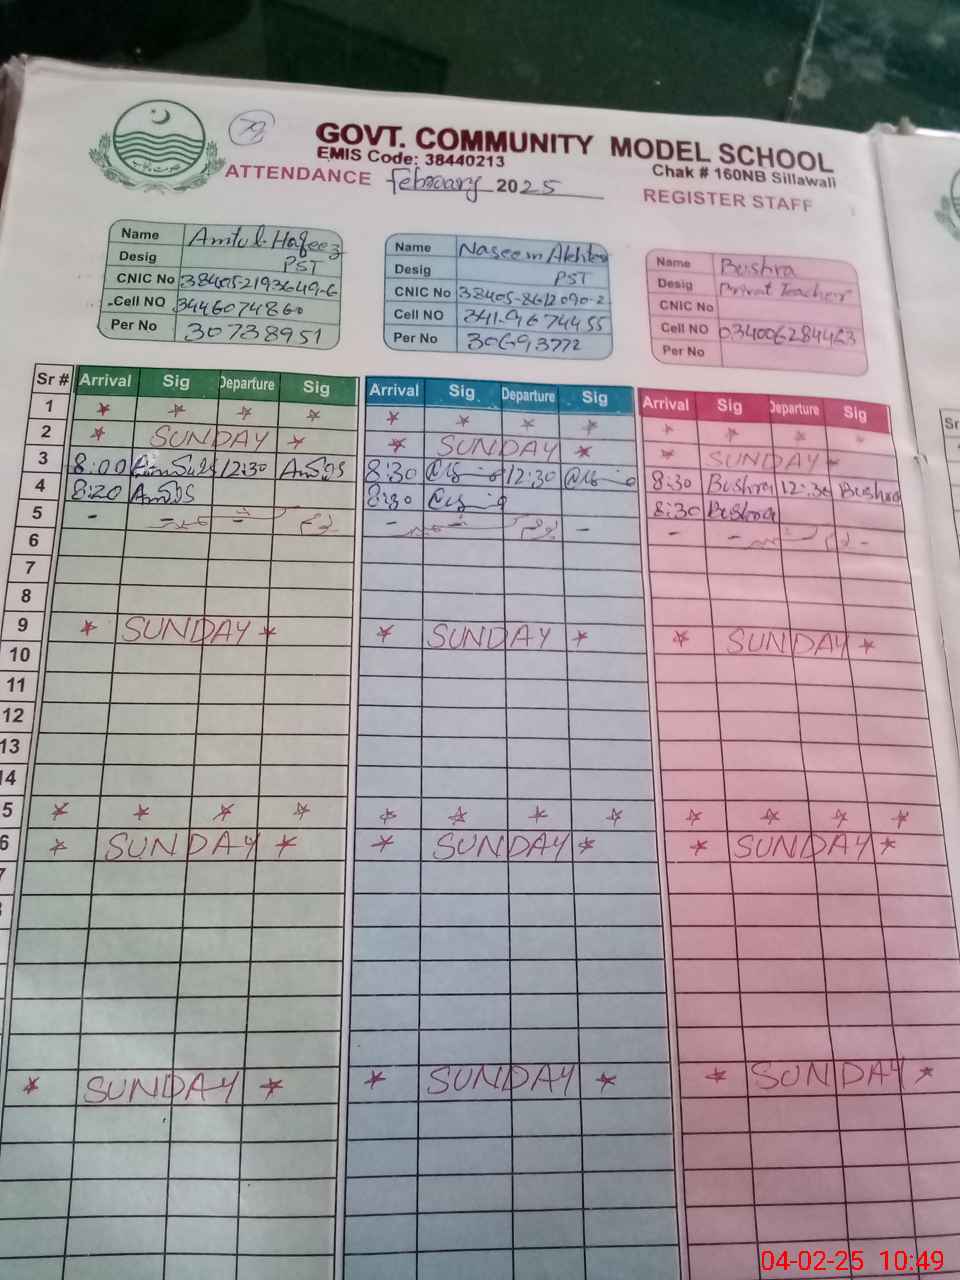 79
GOVT. COMMUNITY MODEL SCHOOL
EMIS Code: 38440213
Chak # 160NB Sillawali
ATTENDANCE February 2025
REGISTER STAFF
Name Amtul Hafeez
Desig PST
CNIC No 38405-2193649-6
Cell NO 3446074860
Per No 30738951
Name Naseem Akhtar
Desig PST
CNIC No 38405-8612090-2
Cell NO 341-9674455
Per No 30693772
Name Bushra
Desig Privat Teacher
CNIC No
Cell NO 034006284463
Per No
Sr # Arrival Sig Departure Sig Arrival Sig Departure Sig Arrival Sig Departure Sig
1 * * * * * * * * * * * *
2 * SUNDAY * * SUNDAY * * SUNDAY *
3 8:00 12:30 8:30 12:30 8:30 Bushra 12:30 Bushra
4 8:20 8:30 8:30 Bushra
5 - - - - - - - - -
6
7
8
9 * SUNDAY * * SUNDAY * * SUNDAY *
10
11
12
13
14
5 * * * * * * * * * * * *
6 * SUNDAY * * SUNDAY * * SUNDAY *
7
* SUNDAY * * SUNDAY * * SUNDAY *
Sr
04-02-25 10:49